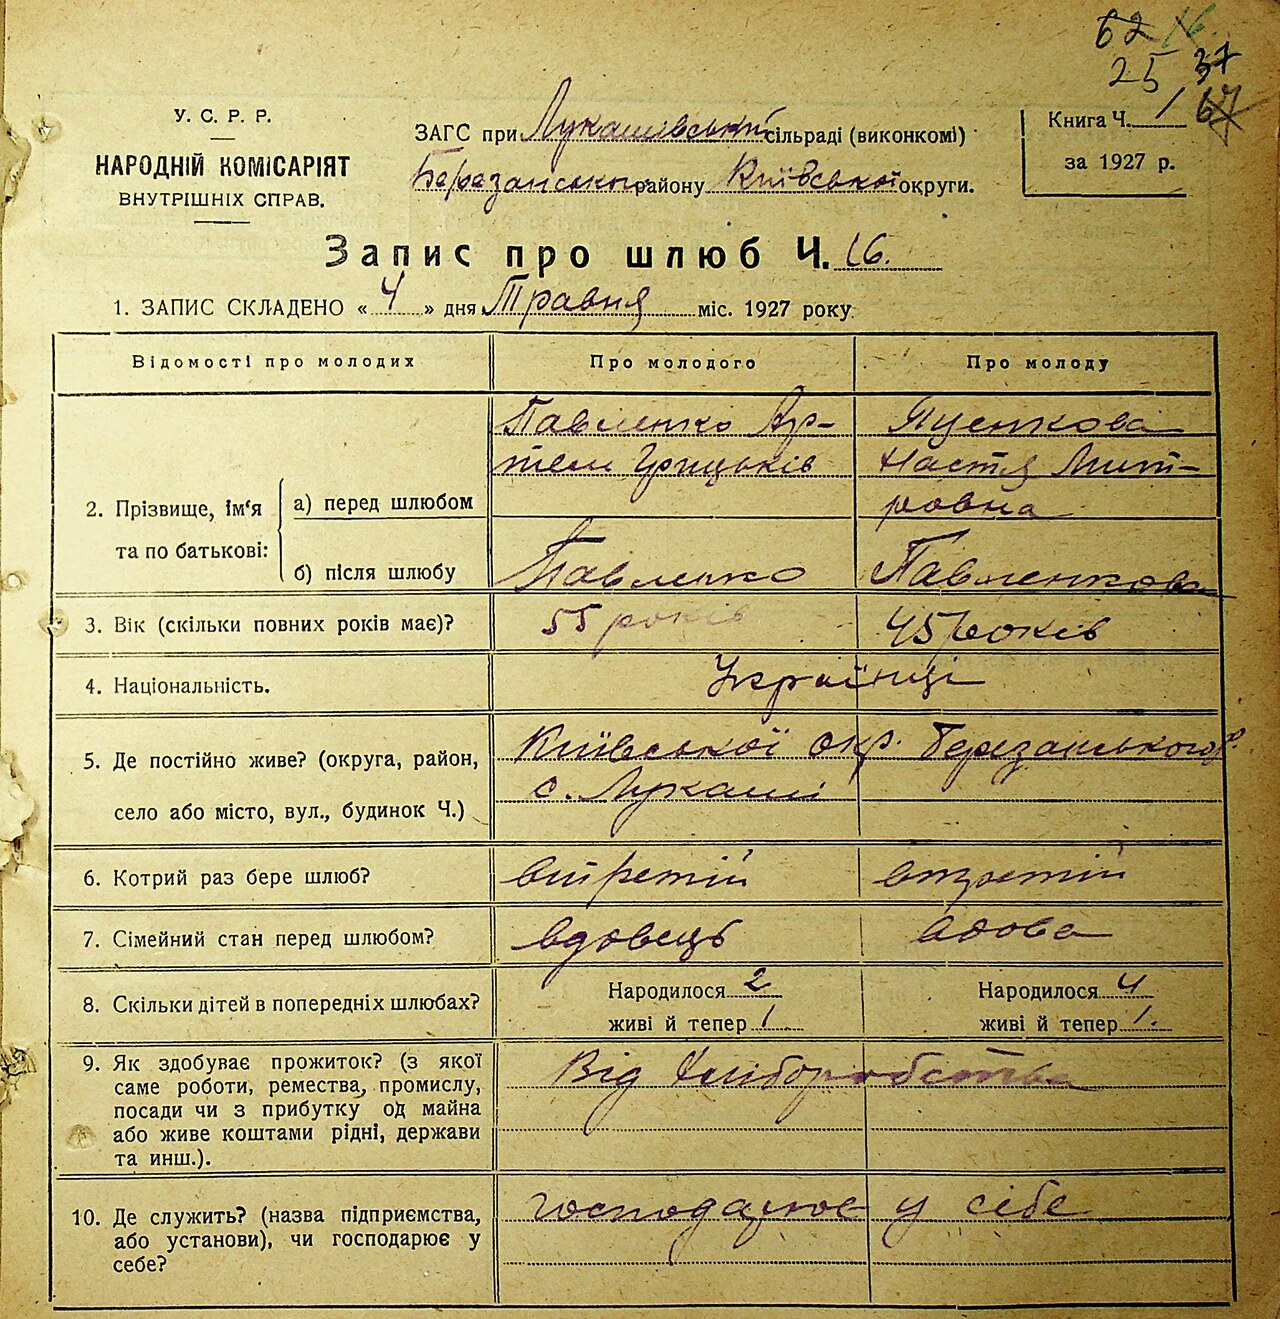 62 16.
25 37
67
У. С. Р. Р.
НАРОДНІЙ КОМІСАРІЯТ
ВНУТРІШНІХ СПРАВ.
ЗАГС при Лукашівський сільраді (виконкомі)
Березанського району Київської округи.
Книга Ч. 1
за 1927 р.
Запис про шлюб Ч. 16.
1. ЗАПИС СКЛАДЕНО « 4 » дня Травня міс. 1927 року
Відомості про молодих Про молодого Про молоду
2. Прізвище, ім‘я та по батькові:
а) перед шлюбом
Павленко Ар-
тем Грицьків
Яценкова
Настя Мит-
ровна
б) після шлюбу Павленко Павленкова
3. Вік (скільки повних років має)? 55 років 45 років
4. Національність. Українці
5. Де постійно живе? (округа, район, Київської окр. Березанського р.
село або місто, вул., будинок Ч.) с. Лукаші
6. Котрий раз бере шлюб? втретій втретій
7. Сімейний стан перед шлюбом? вдовець вдова
8. Скільки дітей в попередніх шлюбах? Народилося 2 Народилося 4
живі й тепер 1 живі й тепер 1.
9. Як здобуває прожиток? (з якої Від хліборобства
саме роботи, ремества, промислу,
посади чи з прибутку од майна
або живе коштами рідні, держави
та инш.).
10. Де служить? (назва підприємства, господарює у сібе
або установи), чи господарює у
себе?